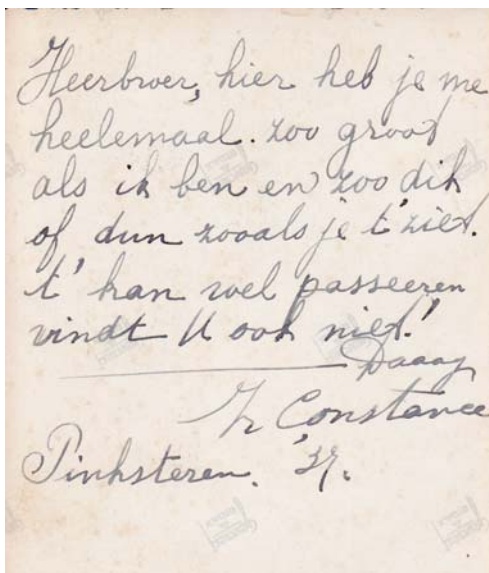 Heerbroer, hier heb je me
heelemaal. zoo groot
als ik ben en zoo dik
of dun zooals je t' ziet.
t' kan wel passeeren
vindt U ook niet!
Daaag
Zr Constance
Pinksteren. '37.